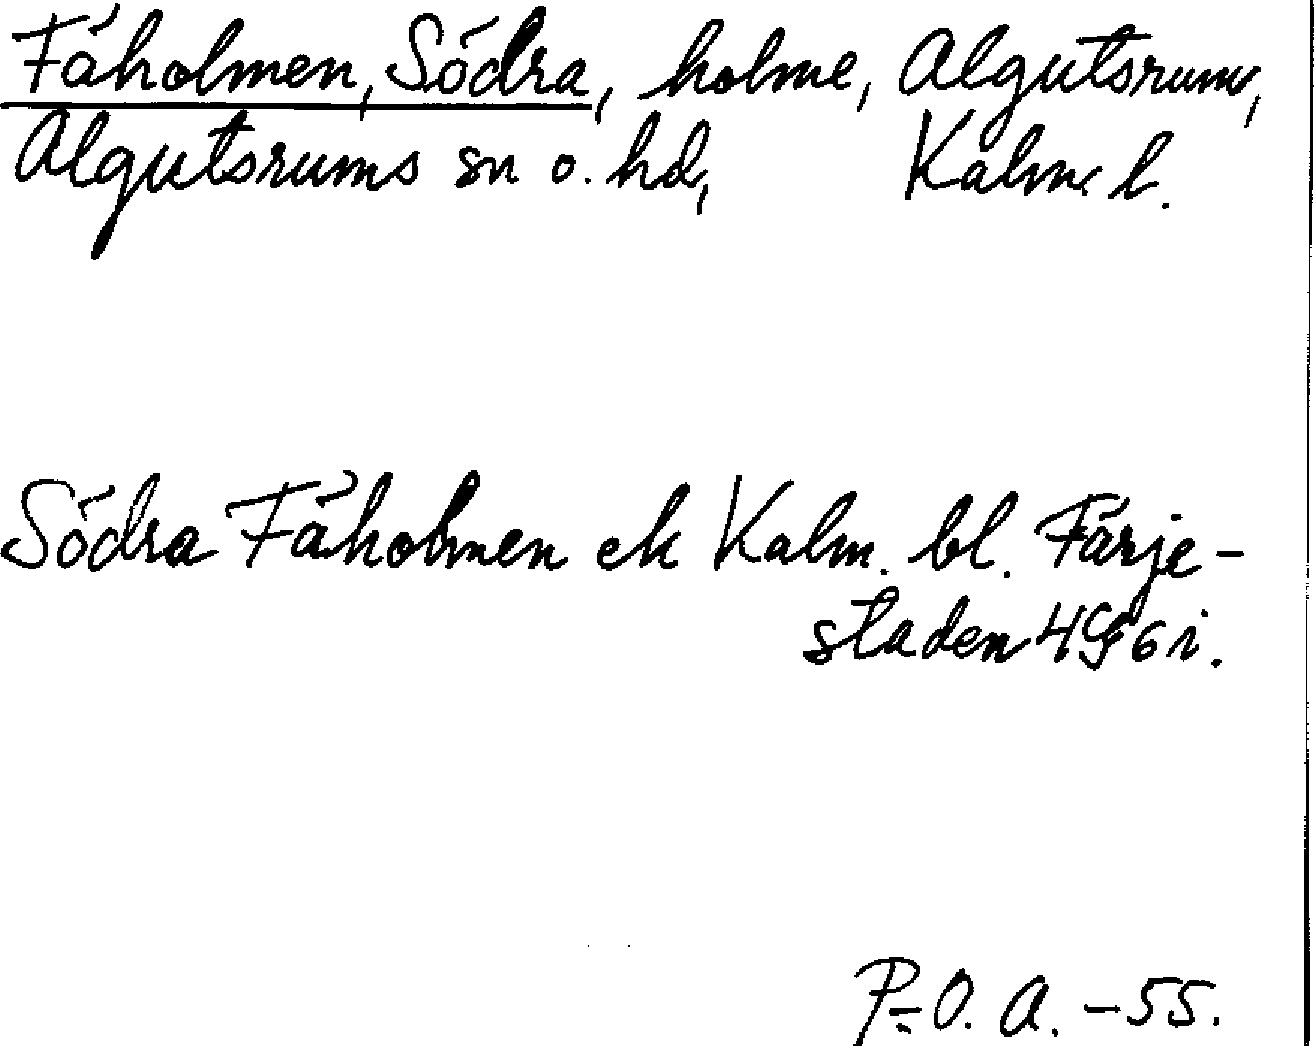 Fäholmen, Södra, holme, Algutsrum,
Algutsrums sn o. hd, Kalm. l.
Södra Fäholmen ek Kalm. bl. Färje-
staden 4G6i.
P.-O. A. -55.